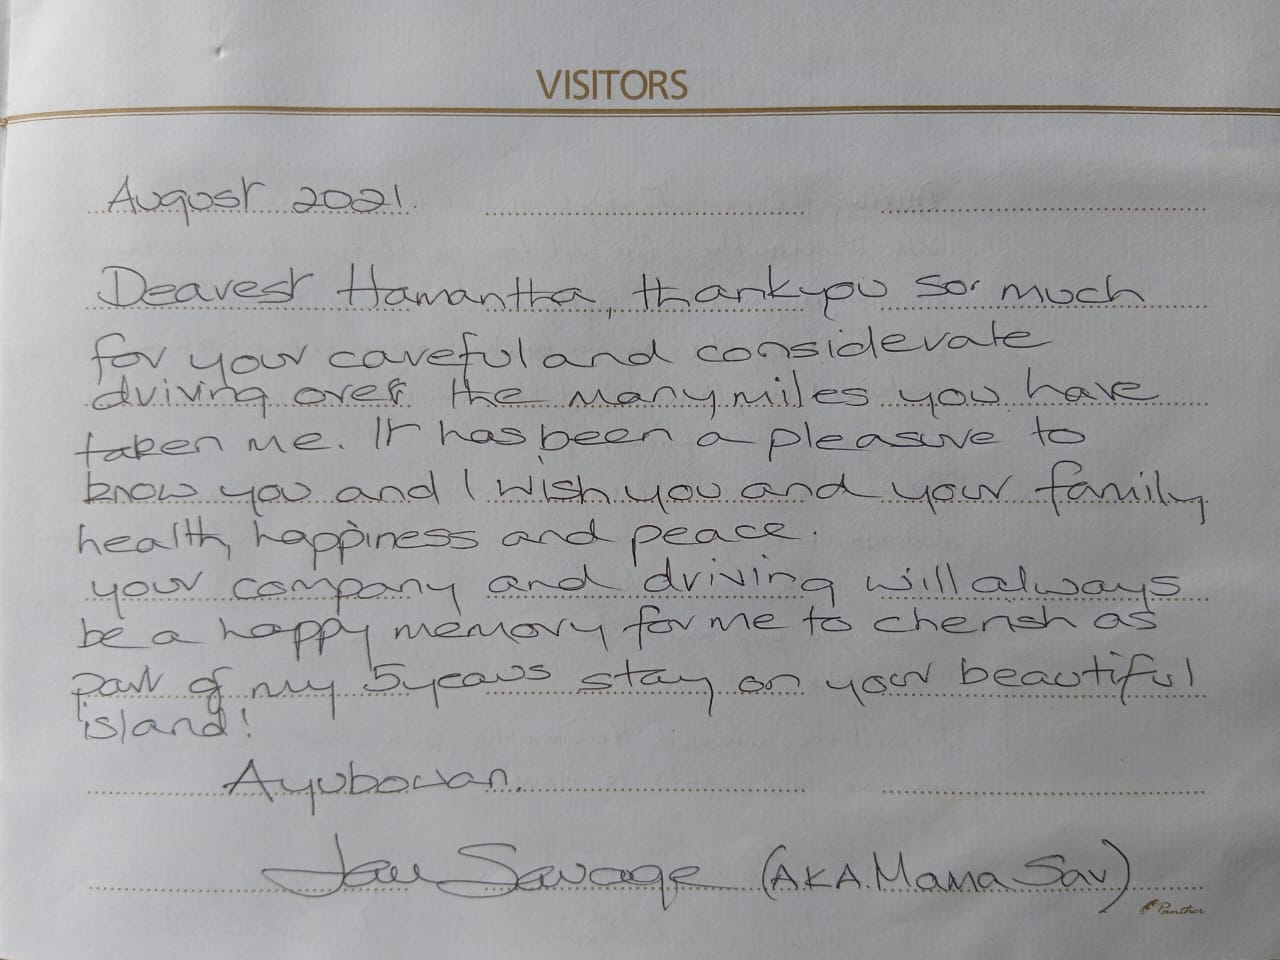 VISITORS
August 2021.
Dearest Hamantha, thankyou so much
for your careful and considerate
driving over the many miles you have
taken me. It has been a pleasure to
know you and I wish you and your family
health, happiness and peace.
your company and driving will always
be a happy memory for me to cherish as
part of my 5 years stay on your beautiful
island!
Ayubowan.
Savage (AKA. Mama Sav)
Panther